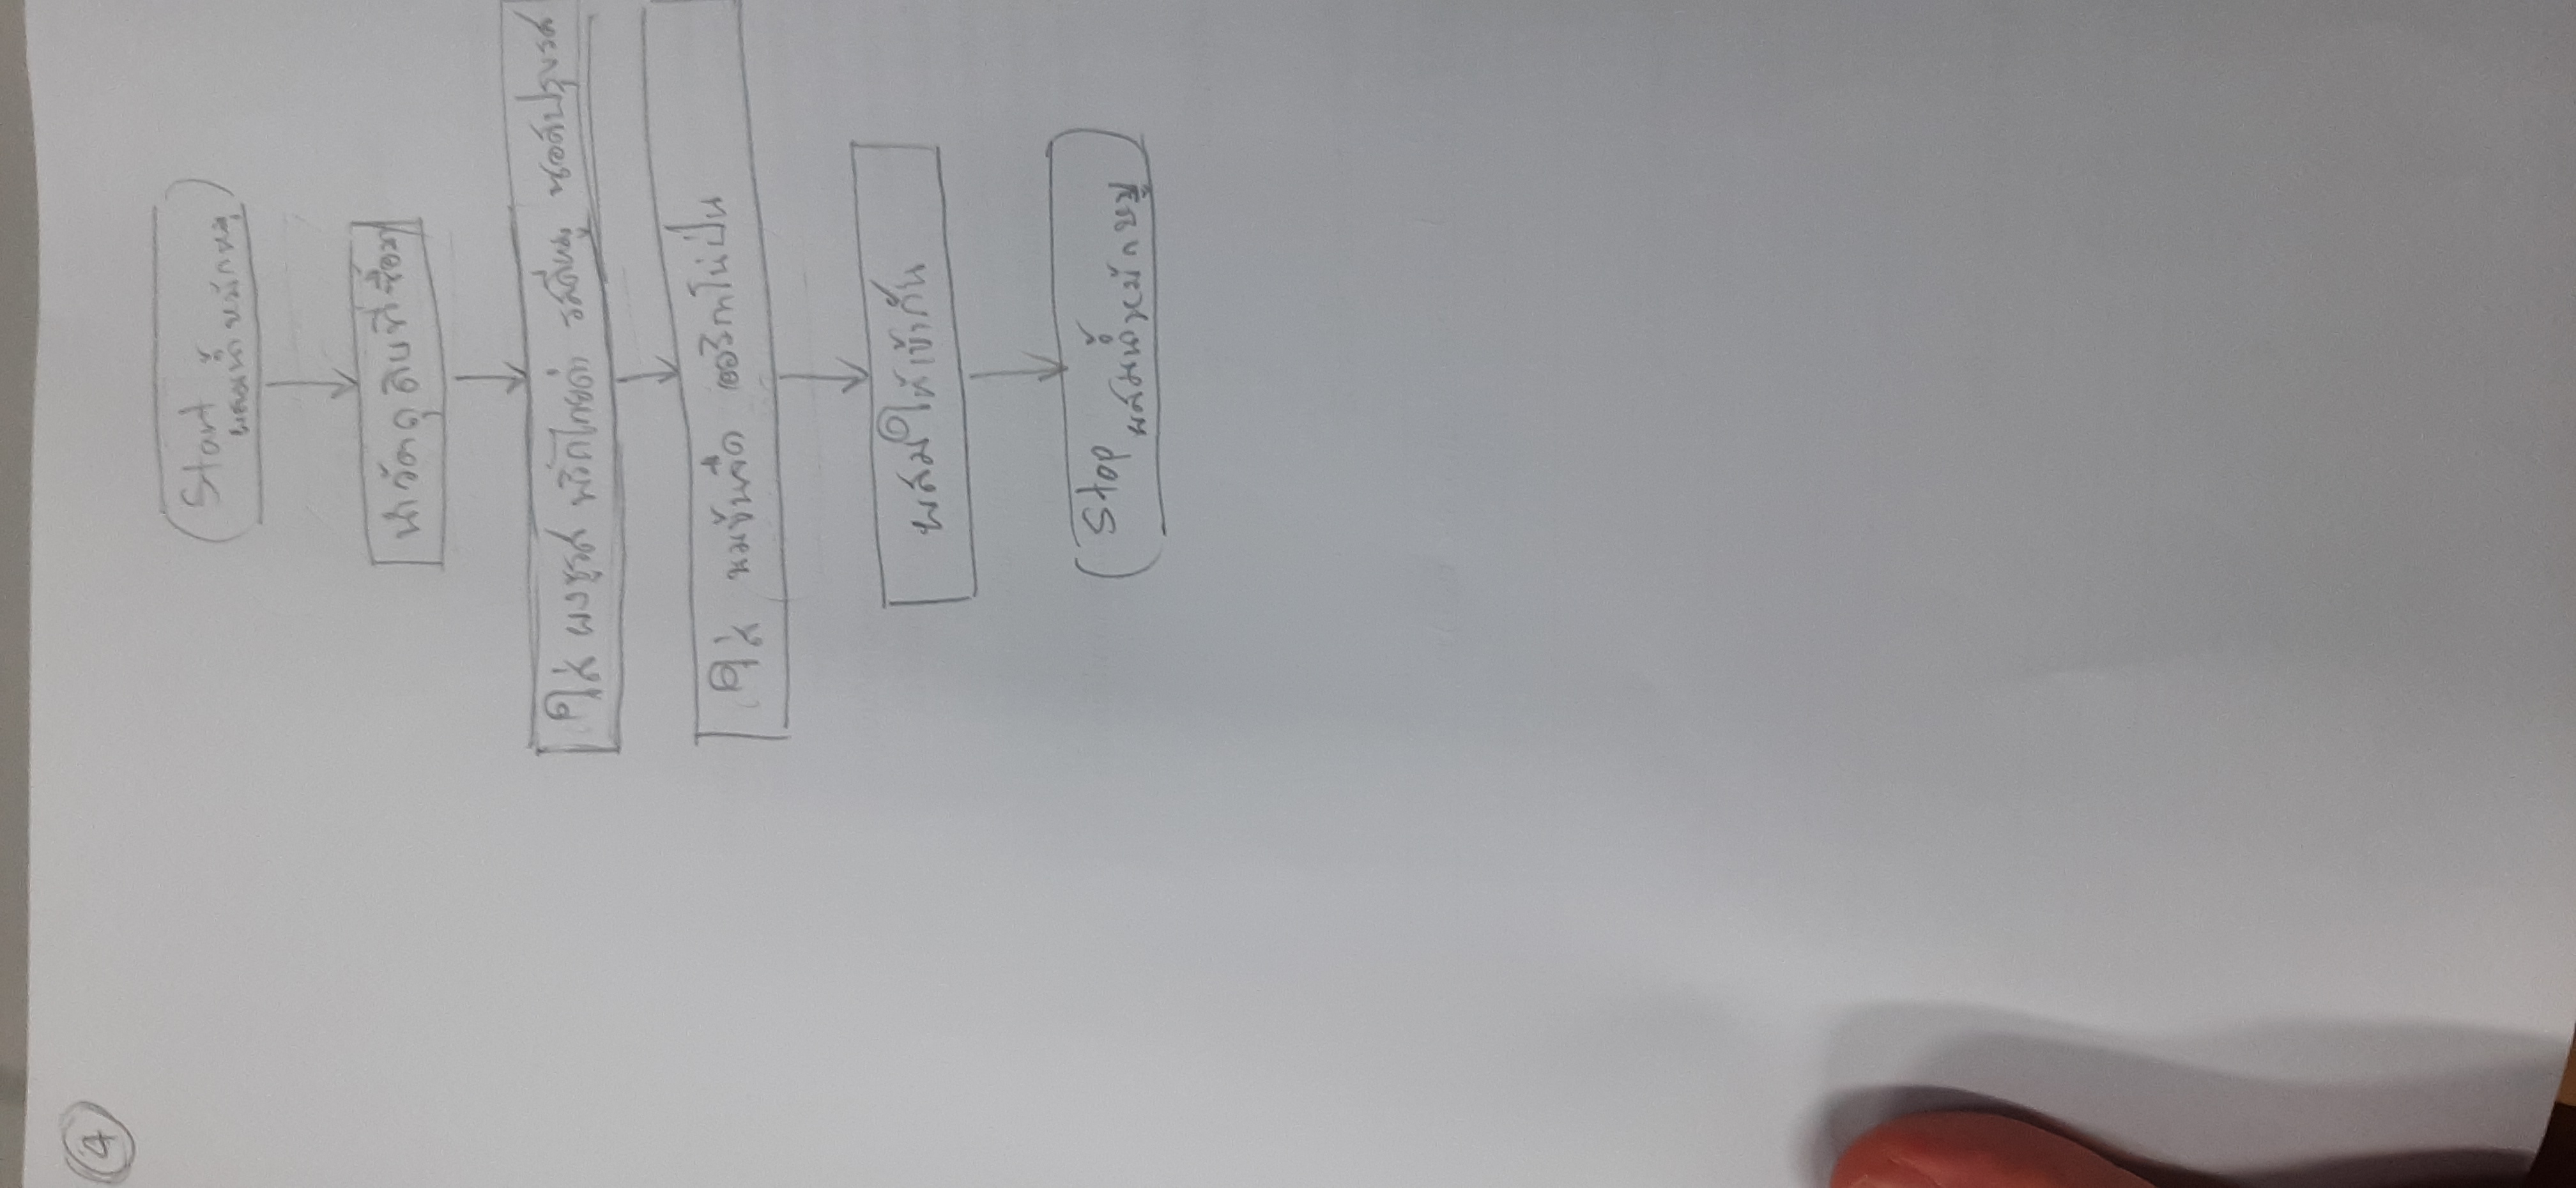 4
Start
ผสมน้ำหมักหมู
นำวัตถุดิบที่ซื้อมา
ใส่ ผงชูรส พริกไทยดำ รสดีหมู ซอสปรุงรส
ใส่ นมข้นจืด ออริกาโน่ป่น
ผสมให้เข้ากัน
Stop
ผสมน้ำหมักหมู